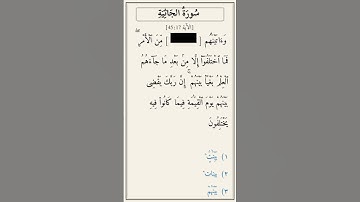 سُورَةُ الجَاثِيَةِ
[الآية 45:17]
وَءَاتَيْنَٰهُم [ ] مِّنَ ٱلْأَمْرِ ۖ
فَمَا ٱخْتَلَفُوٓا۟ إِلَّا مِنۢ بَعْدِ مَا جَآءَهُمُ
ٱلْعِلْمُ بَغْيًۢا بَيْنَهُمْ ۚ إِنَّ رَبَّكَ يَقْضِى
بَيْنَهُمْ يَوْمَ ٱلْقِيَٰمَةِ فِيمَا كَانُوا۟ فِيهِ
يَخْتَلِفُونَ
١) بَيِّنَٰتٍ
٢) بَيِّنَات
٣) بَيْنَهُم